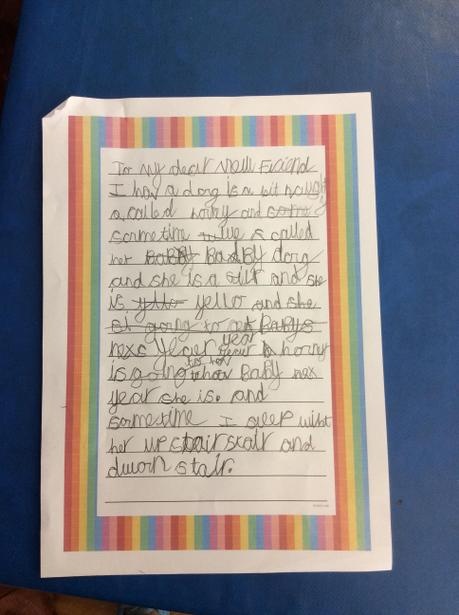 To My dear New Friend
I hav a dorg is a bit naugh
a called honny and some
sorme time we s called
her BaBBy dorg
and she is a and she
is yllo yello and she
going to Babys
nexc Year year honny
is going to hav BaBy nex
year she is. and
sorme time I sleep wiht
her up stair stair and
dworn stair.